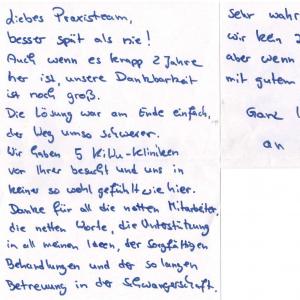 Liebes Praxisteam,
besser spät als nie!
Auch wenn es knapp 2 Jahre
her ist, unsere Dankbarkeit
ist noch groß.
Die Lösung war am Ende einfach,
der Weg umso schwerer.
Wir haben 5 KiWu-Kliniken
vor Ihrer besucht und uns in
keiner so wohl gefühlt wie hier.
Danke für all die netten Mitarbeiter,
die netten Worte, die Unterstützung
in all meinen Ideen, der sorgfältigen
Behandlungen und der so langen
Betreuung in der Schwangerschaft.
Sehr wahr
wir kein
aber wenn
mit gutem
Ganz
an